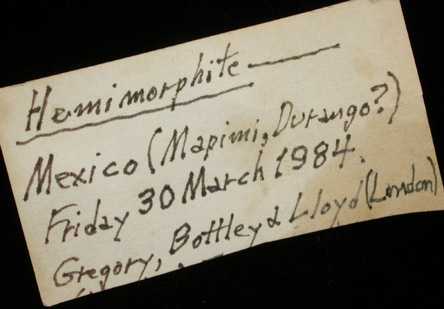 Hemimorphite
Mexico (Mapimi, Durango?)
Friday 30 March 1984.
Gregory, Bottley & Lloyd (London)